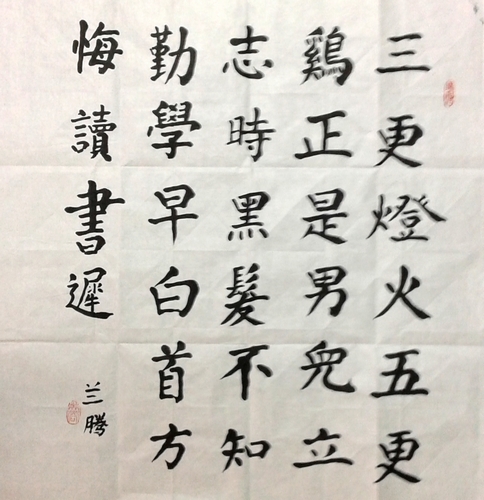 三更燈火五更
鷄正是男兒立
志時黑髮不知
勤學早白首方
悔讀書遲
兰腾